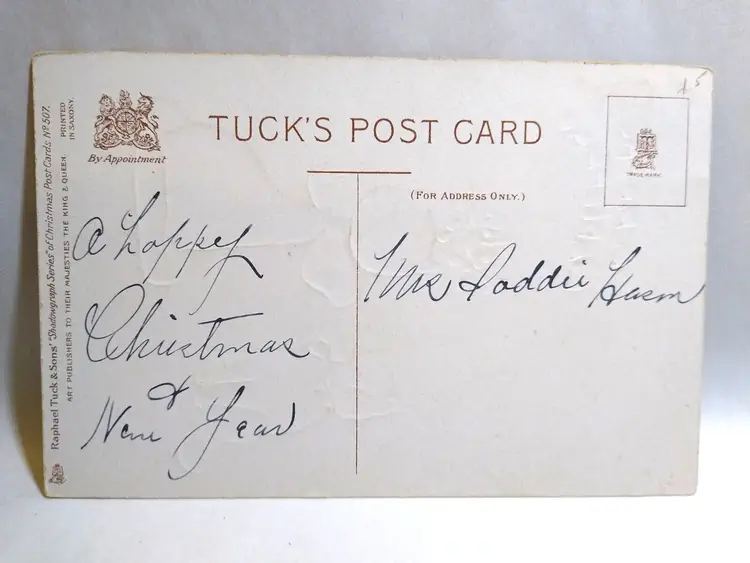 Raphael Tuck & Sons' "Shadowgraph Series" of Christmas Post Cards Nº 507.
ART PUBLISHERS TO THEIR MAJESTIES THE KING & QUEEN.
PRINTED
IN SAXONY.
By Appointment
TUCK'S POST CARD
(FOR ADDRESS ONLY.)
TRADE MARK
15
A happy
Christmas
&
New Year
Mrs